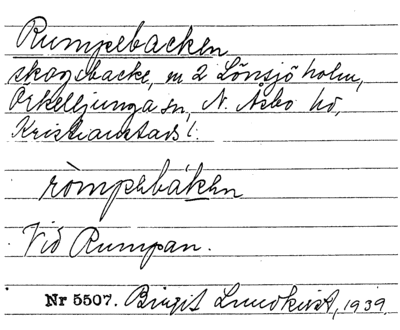 Rumpebacken
skogsbacke, m 2 Lönsjöholm,
Örkelljunga sn, N. Åsbo hd,
Kristianstads l.
ròmpebáken
Vid Rumpan.
Nr 5507. Birgit Lundkvist, 1939.